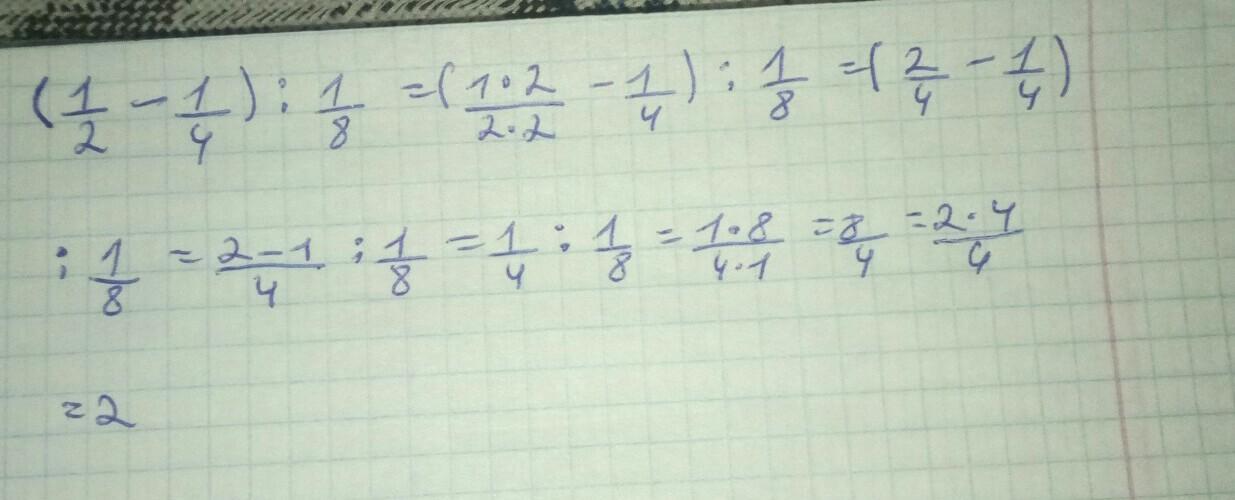 (1/2 - 1/4) : 1/8 = (1·2/2·2 - 1/4) : 1/8 = (2/4 - 1/4)
: 1/8 = 2-1/4 : 1/8 = 1/4 : 1/8 = 1·8/4·1 = 8/4 = 2·4/4
= 2